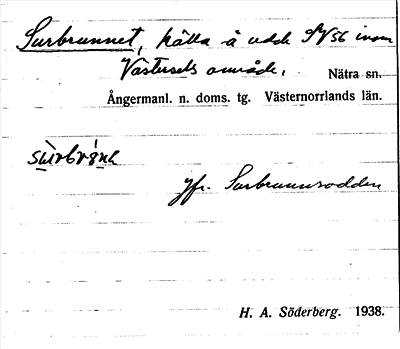 Surbrunnet, källa å udde S V56 inom
Västersels område. Nätra sn.
Ångermanl. n. doms. tg. Västernorrlands län.
jfr. Surbrunnsodden
H. A. Söderberg. 1938.